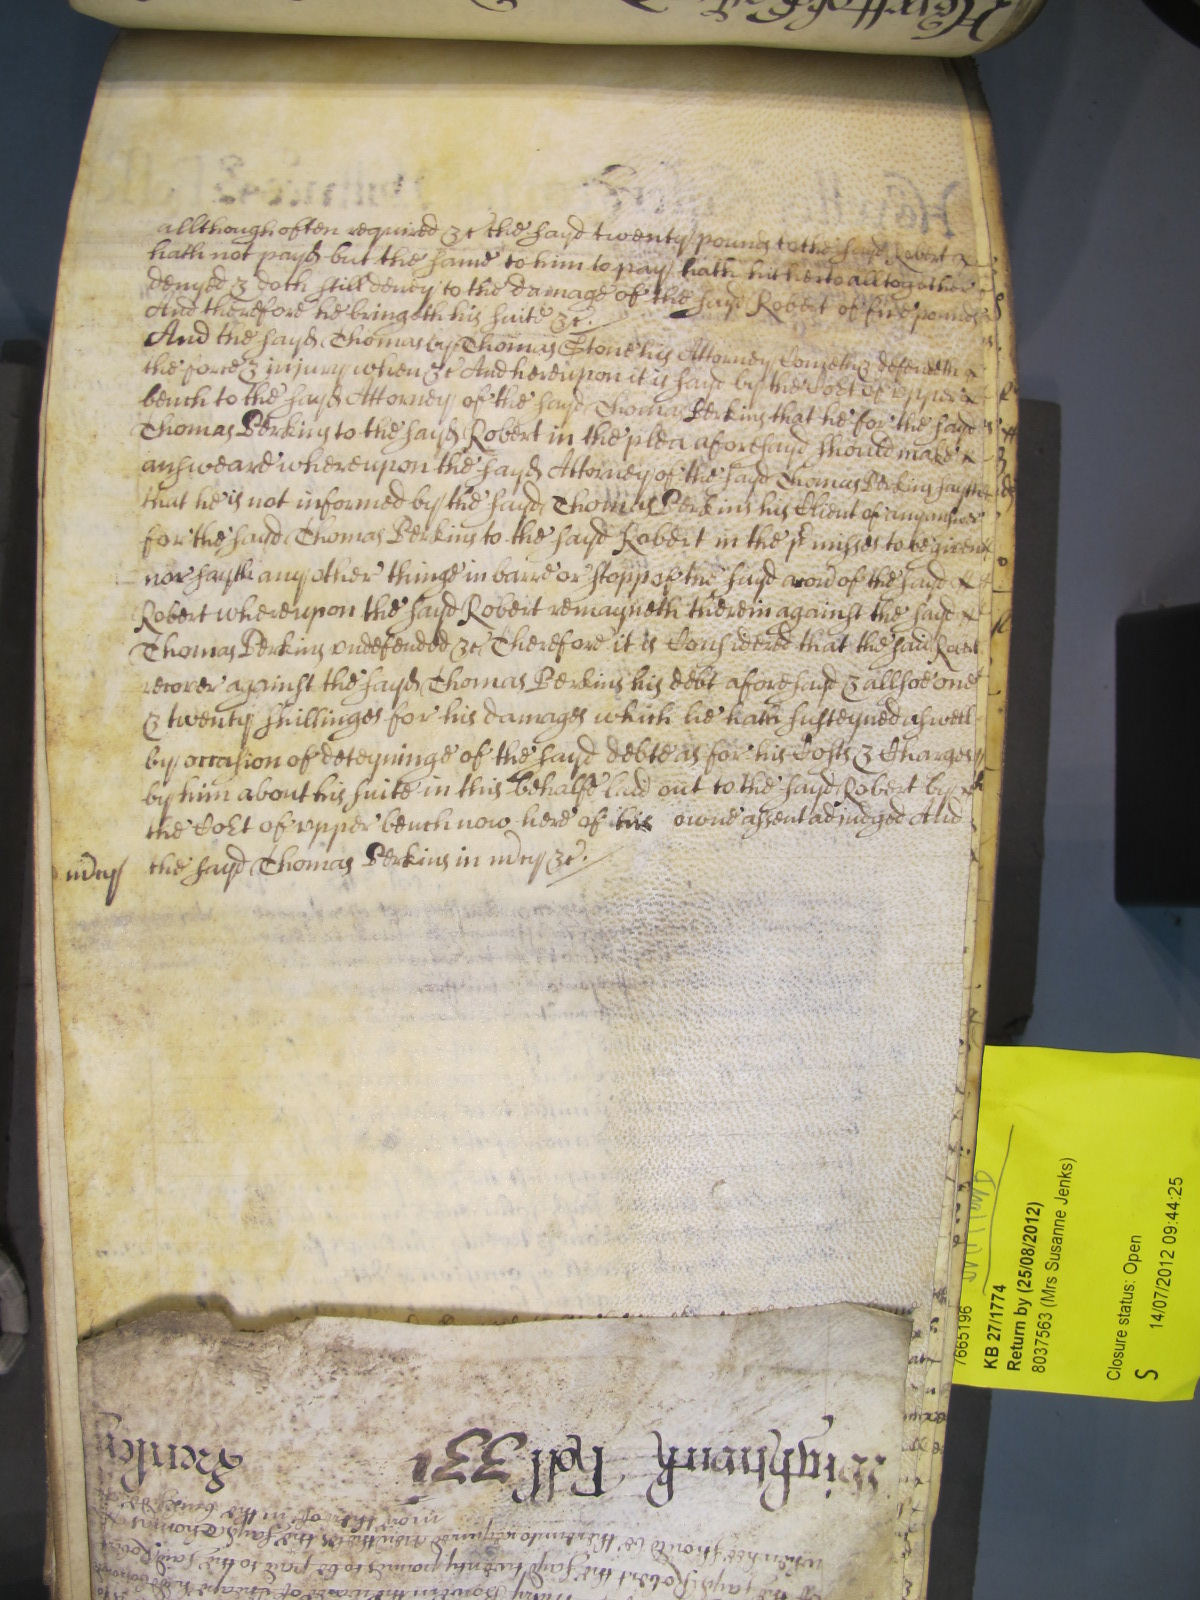 allthough often required &c the sayd twenty pounds to the sayd Robert
hath not payd but the same to him to pay hath hitherto alltogether
denyed & doth still deney to the damage of the sayd Robert of five pounds
And therefore he bringeth his suite &c.
And the sayd Thomas by Thomas Stone his Attorney Cometh & defendeth
the force & injury when &c And hereupon it is sayd by the Co:rt of upper
bench to the sayd Attorney of the sayd Thomas Perkins that he for the sayd
Thomas Perkins to the sayd Robert in the plea aforesayd should make
answeare whereupon the sayd Attorney of the sayd Thomas Perkins sayth
that he is not informed by the sayd Thomas Perkins his Client of any answer
for the sayd Thomas Perkins to the sayd Robert in the p:rmisses to be given
nor sayth any other thinge in barre or stopp of the sayd accon of the sayd
Robert whereupon the sayd Robert remayneth therein against the sayd
Thomas Perkins undefended &c Therefore it is Considered that the said Robert
recover against the sayd Thomas Perkins his debt aforesayd & allsoe one
& twenty shillinges for his damages which he hath susteyned aswell
by occasion of deteyninge of the sayd debte as for his Costs & Charges
by him about his suite in this behalfe laid out to the sayd Robert by
the Co:rt of upper bench now here of his owne assent adjudged And
mcy the sayd Thomas Perkins in mcy &c.
7665196
KB 27/1774
Return by (25/08/2012)
8037563 (Mrs Susanne Jenks)
Closure status: Open
S 14/07/2012 09:44:25
Wightwick Roll 331 Henley
more thereof in the
when hee should be thereunto required Nevertheles the sayd Thomas
of the sayd Robert the sayd twenty pounds to be paid to the said Robert